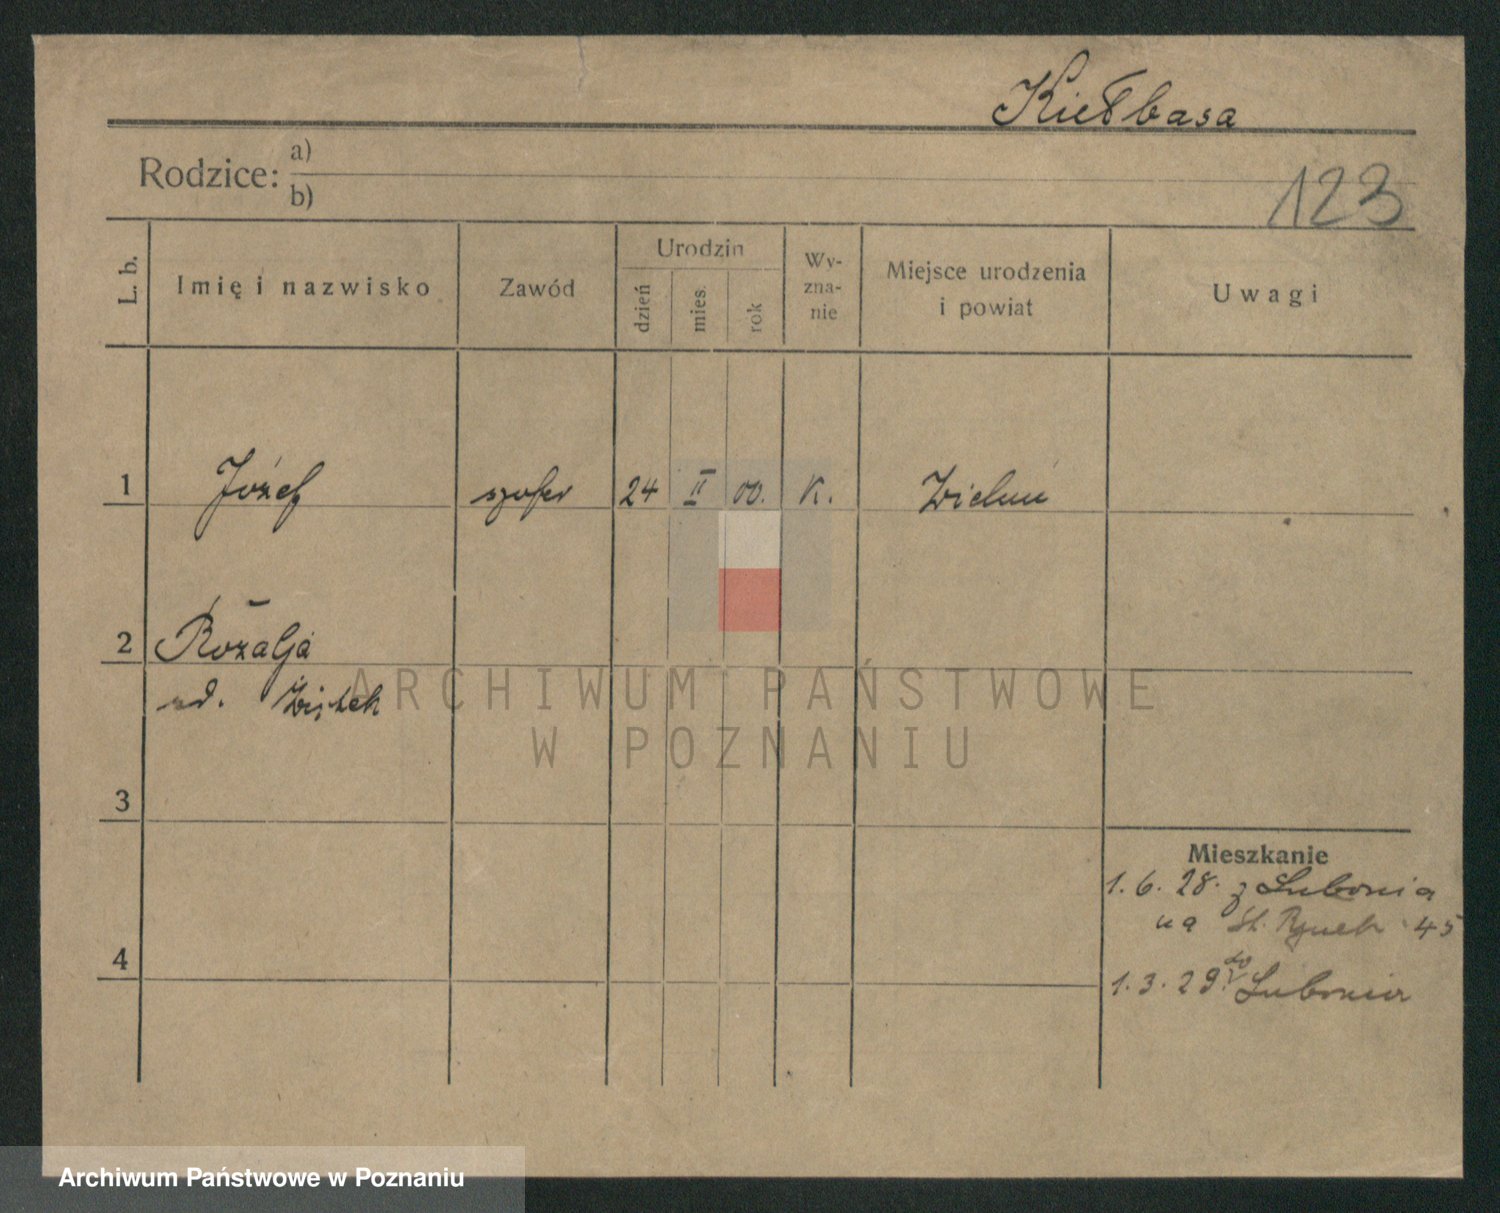 Kiełbasa
Rodzice: a)
b)
123
L. b.
Imię i nazwisko
Zawód
Urodzin
dzień
mies.
rok
Wy-
zna-
nie
Miejsce urodzenia
i powiat
Uwagi
1 Józef szofer 24 II 00. K. Wieluń
2 Rozalja
3
4
Mieszkanie
1. 6. 28. z Lubonia
na St. Rynek 45
1. 3. 29. do Lubonia
ARCHIWUM PAŃSTWOWE
W POZNANIU
Archiwum Państwowe w Poznaniu